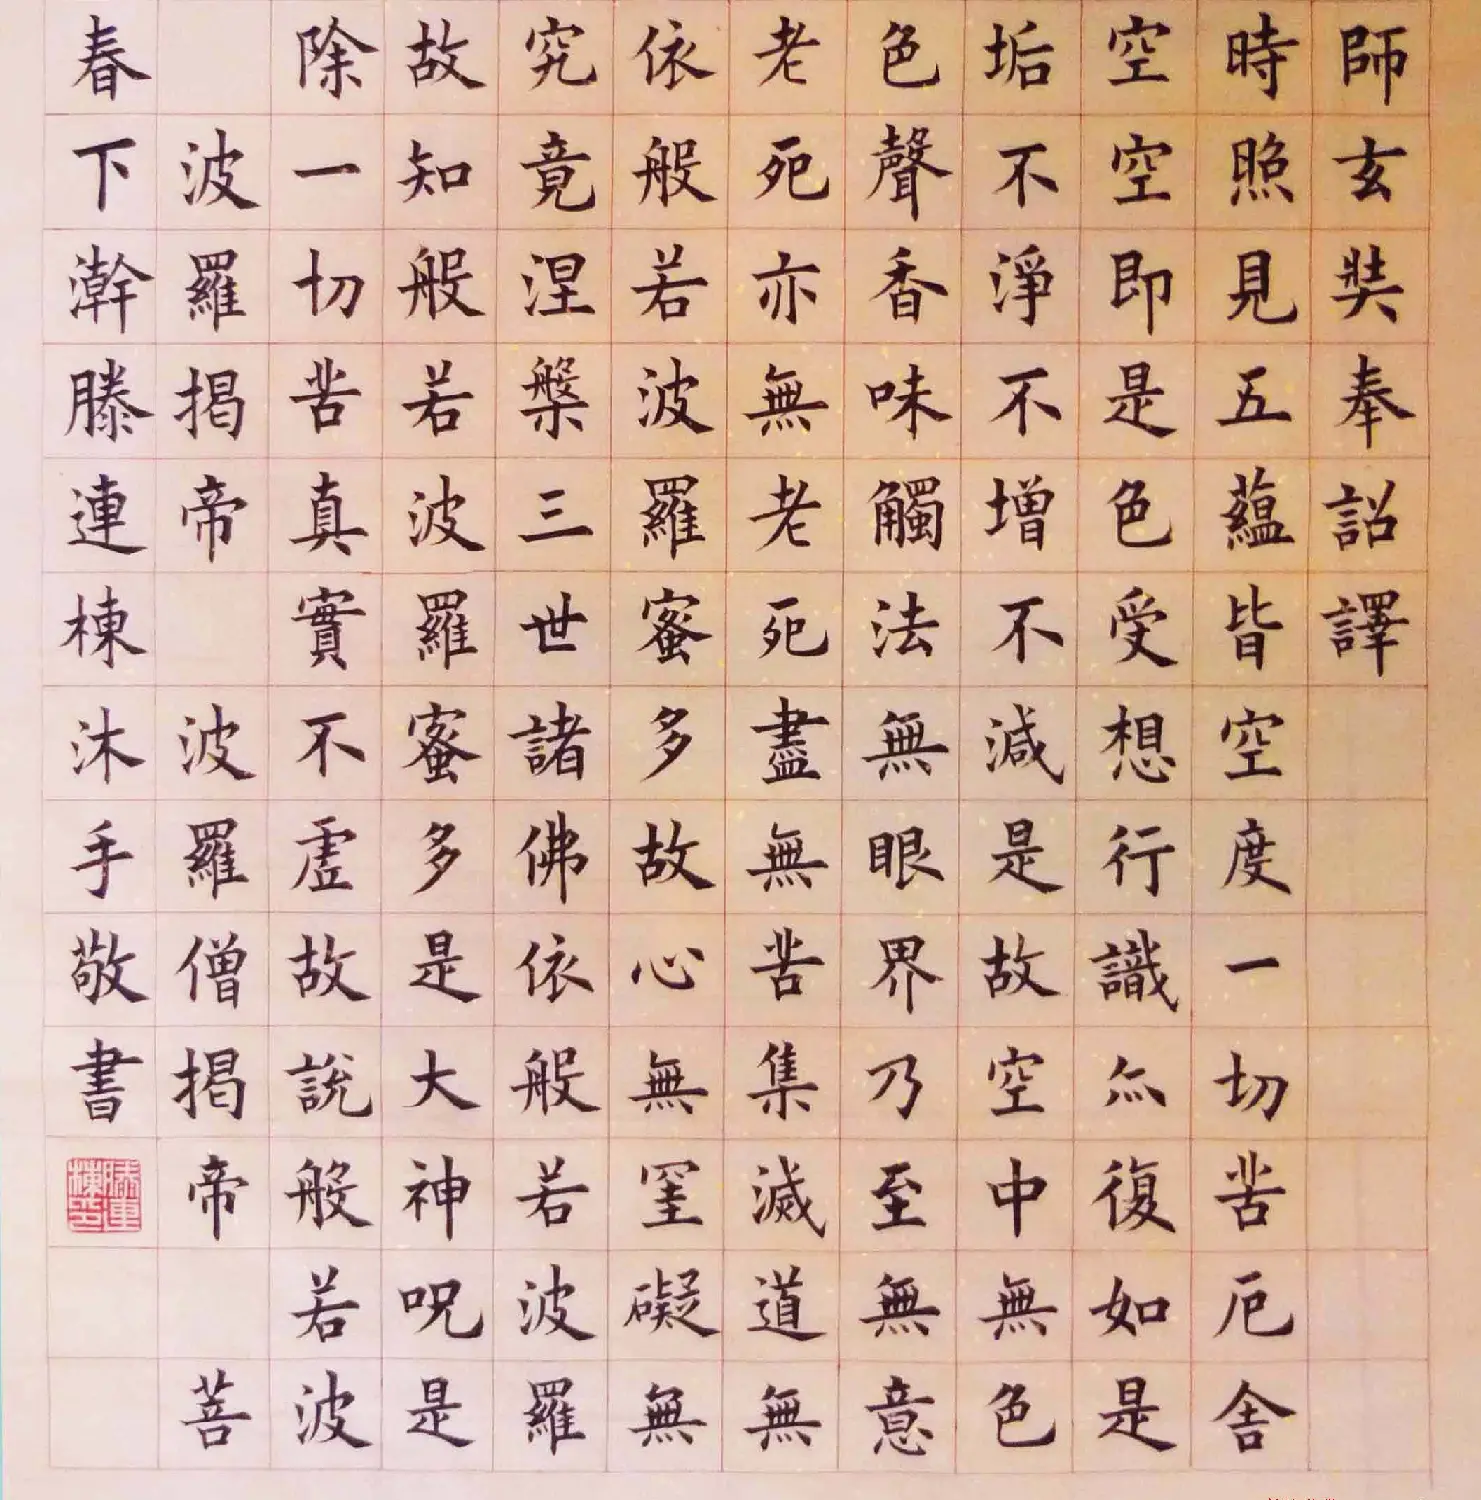 師玄奘奉詔譯
時照見五蘊皆空度一切苦厄舍
空空即是色受想行識亦復如是
垢不淨不增不減是故空中無色
色聲香味觸法無眼界乃至無意
老死亦無老死盡無苦集滅道無
依般若波羅蜜多故心無罣礙無
究竟涅槃三世諸佛依般若波羅
故知般若波羅蜜多是大神呪是
除一切苦真實不虛故說般若波
波羅揭帝 波羅僧揭帝 菩
春下澣滕連棟沐手敬書
滕連棟印